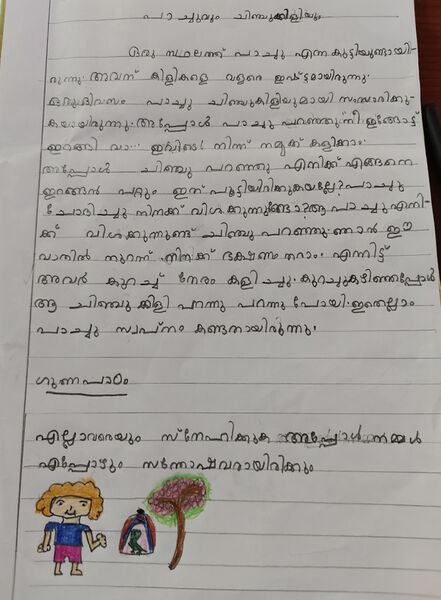 പാച്ചുവും ചിഞ്ചുക്കിളിയും
ഒരു സ്ഥലത്ത് പാച്ചു എന്ന കുട്ടിയുണ്ടായി-
രുന്നു. അവന് കിളികളെ വളരെ ഇഷ്ടമായിരുന്നു.
ഒരുദിവസം പാച്ചു ചിഞ്ചുകിളിയുമായി സംസാരിക്കു-
കയായിരുന്നു. അപ്പോൾ പാച്ചു പറഞ്ഞു നീ ഇങ്ങോട്ട്
ഇറങ്ങി വാ... ഇവിടെ നിന്ന് നമുക്ക് കളിക്കാം.
അപ്പോൾ ചിഞ്ചു പറഞ്ഞു എനിക്ക് എങ്ങനെ
ഇറങ്ങൻ പറ്റും ഇത് പൂട്ടിയിരിക്കുകയല്ലേ? പാച്ചു
ചോദിച്ചു നിനക്ക് വിശക്കുന്നുണ്ടോ? ആ പാച്ചു എനി-
ക്ക് വിശക്കുന്നുണ്ട് ചിഞ്ചു പറഞ്ഞു. ഞാൻ ഈ
വാതിൽ തുറന്ന് നിനക്ക് ഭക്ഷണം തരാം. എന്നിട്ട്
അവർ കുറച്ച് നേരം കളിച്ചു. കുറച്ചുകഴിഞ്ഞപ്പോൾ
ആ ചിഞ്ചു ക്കിളി പറന്നു പറന്നു പോയി. ഇതെല്ലാം
പാച്ചു സ്വപ്നം കണ്ടതായിരുന്നു.
ഗുണപാഠം
എല്ലാവരെയും സ്നേഹിക്കുക അപ്പോൾ നമ്മൾ
എപ്പോഴും സന്തോഷവരായിരിക്കും